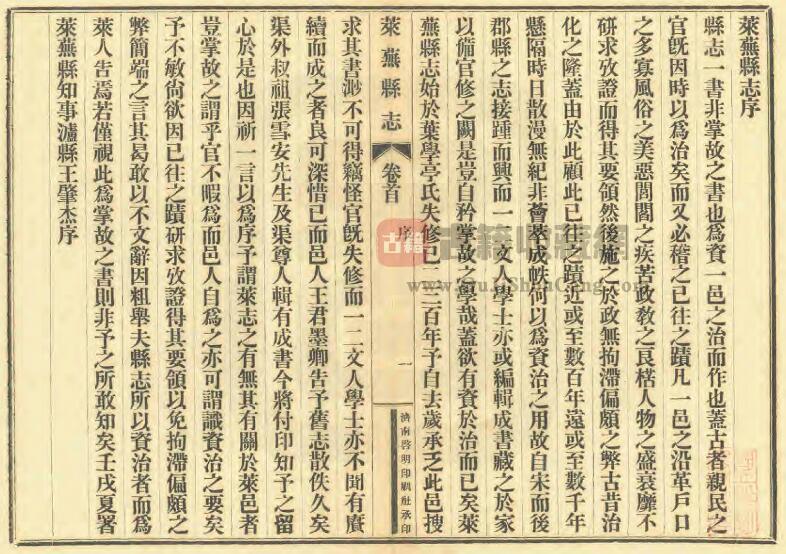 萊蕪縣志序
縣志一書非掌故之書也爲資一邑之治而作也蓋古者親民之
官旣因時以爲治矣而又必稽之已往之蹟凡一邑之沿革戶口
之多寡風俗之美惡閭閻之疾苦政敎之良楛人物之盛衰靡不
研求攷證而得其要領然後施之於政無拘滯偏頗之弊古昔治
化之隆蓋由於此顧此已往之蹟近或至數百年遠或至數千年
懸隔時日散漫無紀非薈萃成帙何以爲資治之用故自宋而後
郡縣之志接踵而興而一二文人學士亦或編輯成書藏之於家
以備官修之闕是豈自矜掌故之學哉蓋欲有資於治而已矣萊
蕪縣志始於葉學亭氏失修已二三百年予自去歲承乏此邑搜
萊蕪縣志
卷首
序
一
濟南啓明印刷社承印
求其書渺不可得竊怪官旣失修而一二文人學士亦不聞有廣
續而成之者良可深惜已而邑人王君墨卿告予舊志散佚久矣
渠外叔祖張雪安先生及渠尊人輯有成書今將付印知予之留
心於是也因祈一言以爲序予謂萊志之有無其有關於萊邑者
豈掌故之謂乎官不暇爲而邑人自爲之亦可謂識資治之要矣
予不敏尙欲因已往之蹟研求攷證得其要領以免拘滯偏頗之
弊簡端之言其曷敢以不文辭因粗舉夫縣志所以資治者而爲
萊人告焉若僅視此爲掌故之書則非予之所敢知矣壬戌夏署
萊蕪縣知事瀘縣王肇杰序
古籍
古籍收藏網